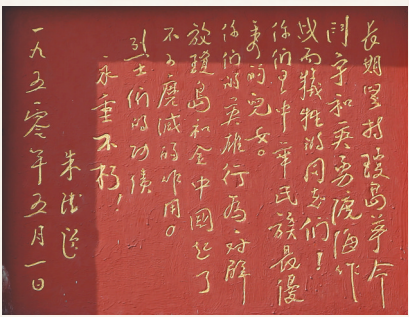 長期坚持瓊島革命
鬥争和英勇渡海作
战而犧牲的同志们！
你们是中華民族最優
秀的兒女。
你们的英雄行為对解
放瓊島和全中國起了
不可磨滅的作用。
烈士們的功績
永垂不朽！
朱德
一九五零年五月一日